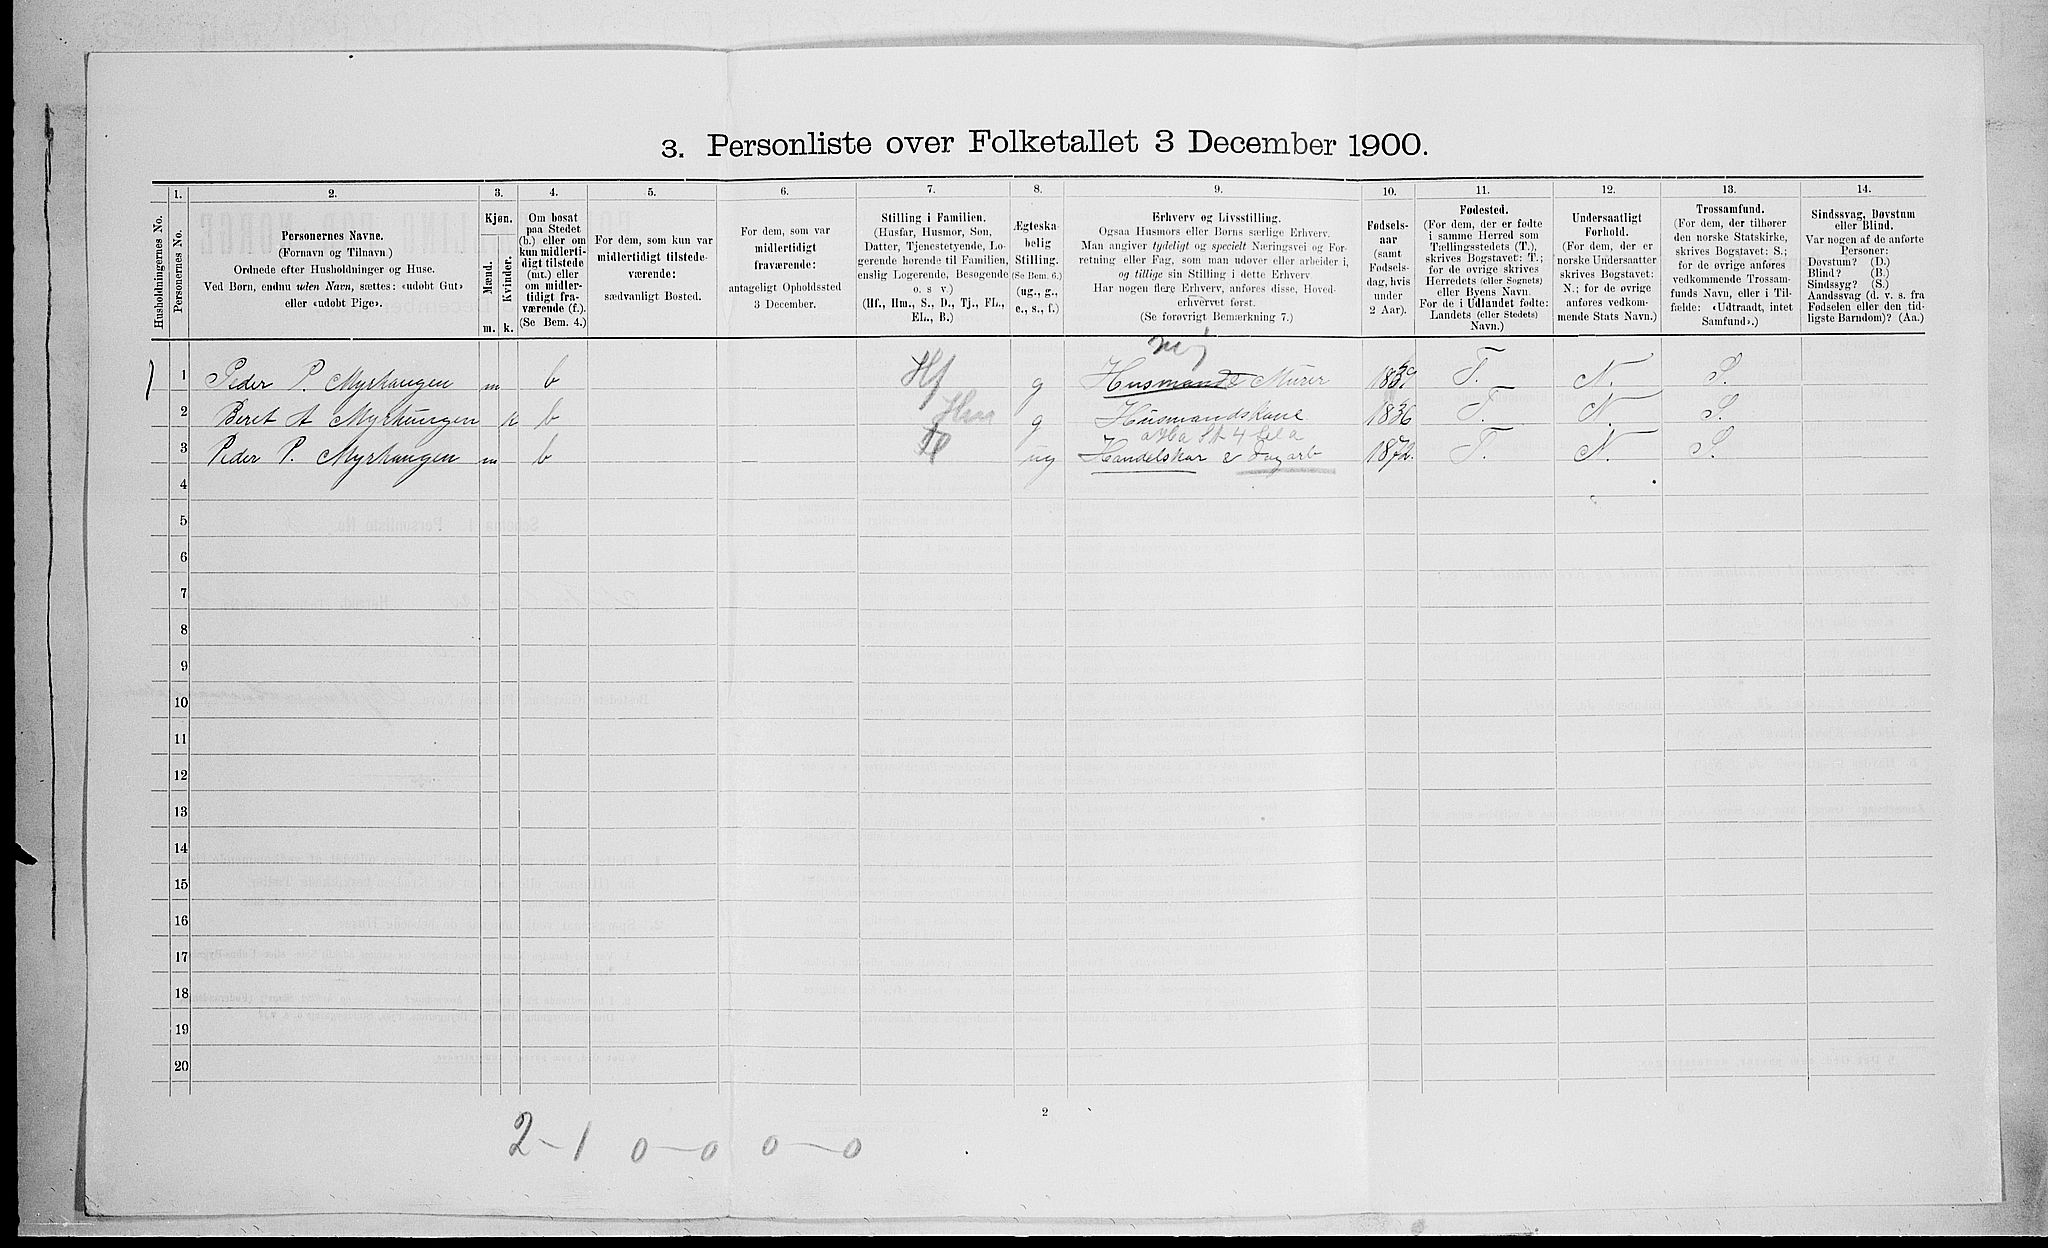 3. Personliste over Folketallet 3 December 1900.
1. 2. 3. 4. 5. 6. 7. 8. 9. 10. 11. 12. 13. 14.
Husholdningernes No.
Personernes No.
Personernes Navne.
(Fornavn og Tilnavn.)
Ordnede efter Husholdninger og Huse.
Ved Børn, endnu uden Navn, sættes: «udøbt Gut»
eller «udøbt Pige».
Kjøn.
Mænd.
Kvinder.
m. k.
Om bosat
paa Stedet
(b.) eller om
kun midlerti-
digt tilstede
(mt.) eller
om midler-
tidigt fra-
værende (f.).
(Se Bem. 4.)
For dem, som kun var
midlertidigt tilstede-
værende:
sædvanligt Bosted.
For dem, som var
midlertidigt
fraværende:
antageligt Opholdssted
3 December.
Stilling i Familien.
(Husfar, Husmor, Søn,
Datter, Tjenestetyende, Lo-
gerende hørende til Familien,
enslig Logerende, Besøgende
o. s. v.)
(Hf., Hm., S., D., Tj., FL.,
EL., B.)
Ægteska-
belig
Stilling.
(Se Bem. 6.)
(ug., g.,
e., s., f.)
Erhverv og Livsstilling.
Ogsaa Husmors eller Børns særlige Erhverv.
Man angiver tydeligt og specielt Næringsvei og For-
retning eller Fag, som man udøver eller arbeider i,
og tillige sin Stilling i dette Erhverv.
Har nogen flere Erhverv, anføres disse, Hoved-
erhvervet først.
(Se forøvrigt Bemærkning 7.)
Fødsels-
aar
(samt
Fødsels-
dag, hvis
under
2 Aar).
Fødested.
(For dem, der er fødte
i samme Herred som
Tællingsstedets (T.),
skrives Bogstavet: T.;
for de øvrige skrives
Herredets (eller Sognets)
eller Byens Navn.
For de i Udlandet fødte:
Landets (eller Stedets)
Navn.)
Undersaatligt
Forhold.
(For dem, der er
norske Undersaatter
skrives Bogstavet:
N.; for de øvrige
anføres vedkom-
mende Stats Navn.)
Trossamfund.
(For dem, der tilhører
den norske Statskirke,
skrives Bogstavet: S.;
for de øvrige anføres
vedkommende Trossam-
funds Navn, eller i Til-
fælde: «Udtraadt, intet
Samfund».)
Sindssvag, Døvstum
eller Blind.
Var nogen af de anførte
Personer:
Døvstum? (D.)
Blind? (B.)
Sindssyg? (S.)
Aandssvag (d. v. s. fra
Fødselen eller den tid-
ligste Barndom)? (Aa.)
1 1 Peder P. Myrhaugen m b Hf g Husmand Murer 1839 T. N. S.
2 Beret A Myrhaugen k b Hm g Husmandskone 1836 T. N. S.
3 Peder P. Myrhaugen m b ug Handelskar & Dagarb 1872 T. N. S.
4
5
6
7
8
9
10
11
12
13
14
15
16
17
18
19
20
2
2-1 0-0 0-0